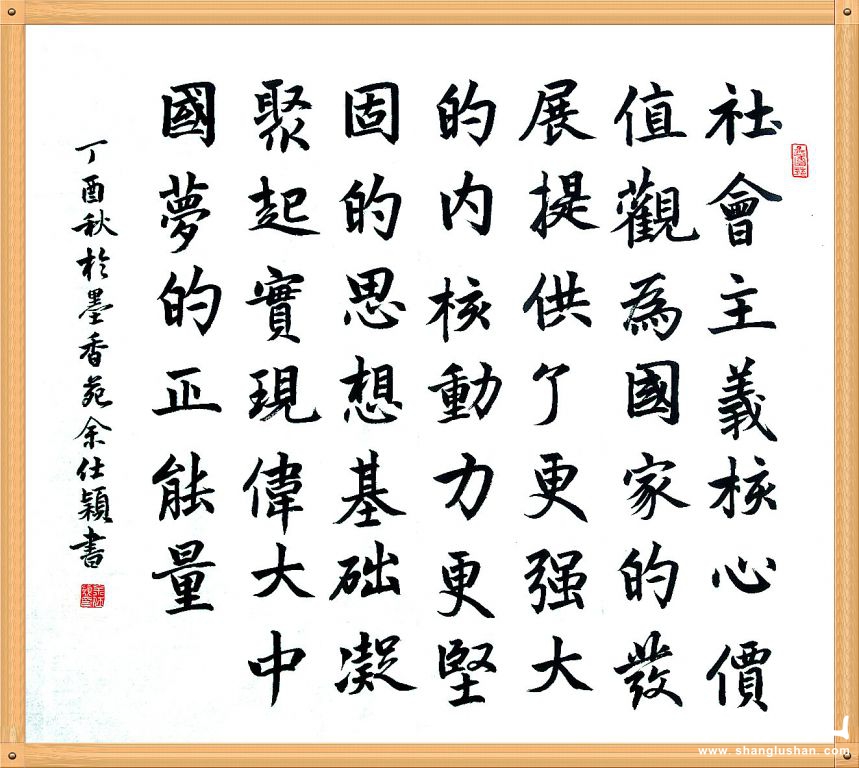 社會主義核心價
值觀為國家的發
展提供了更强大
的内核動力更堅
固的思想基础凝
聚起實現偉大中
國夢的正能量
丁酉秋於墨香苑余仕穎書
www.shanglushan.com